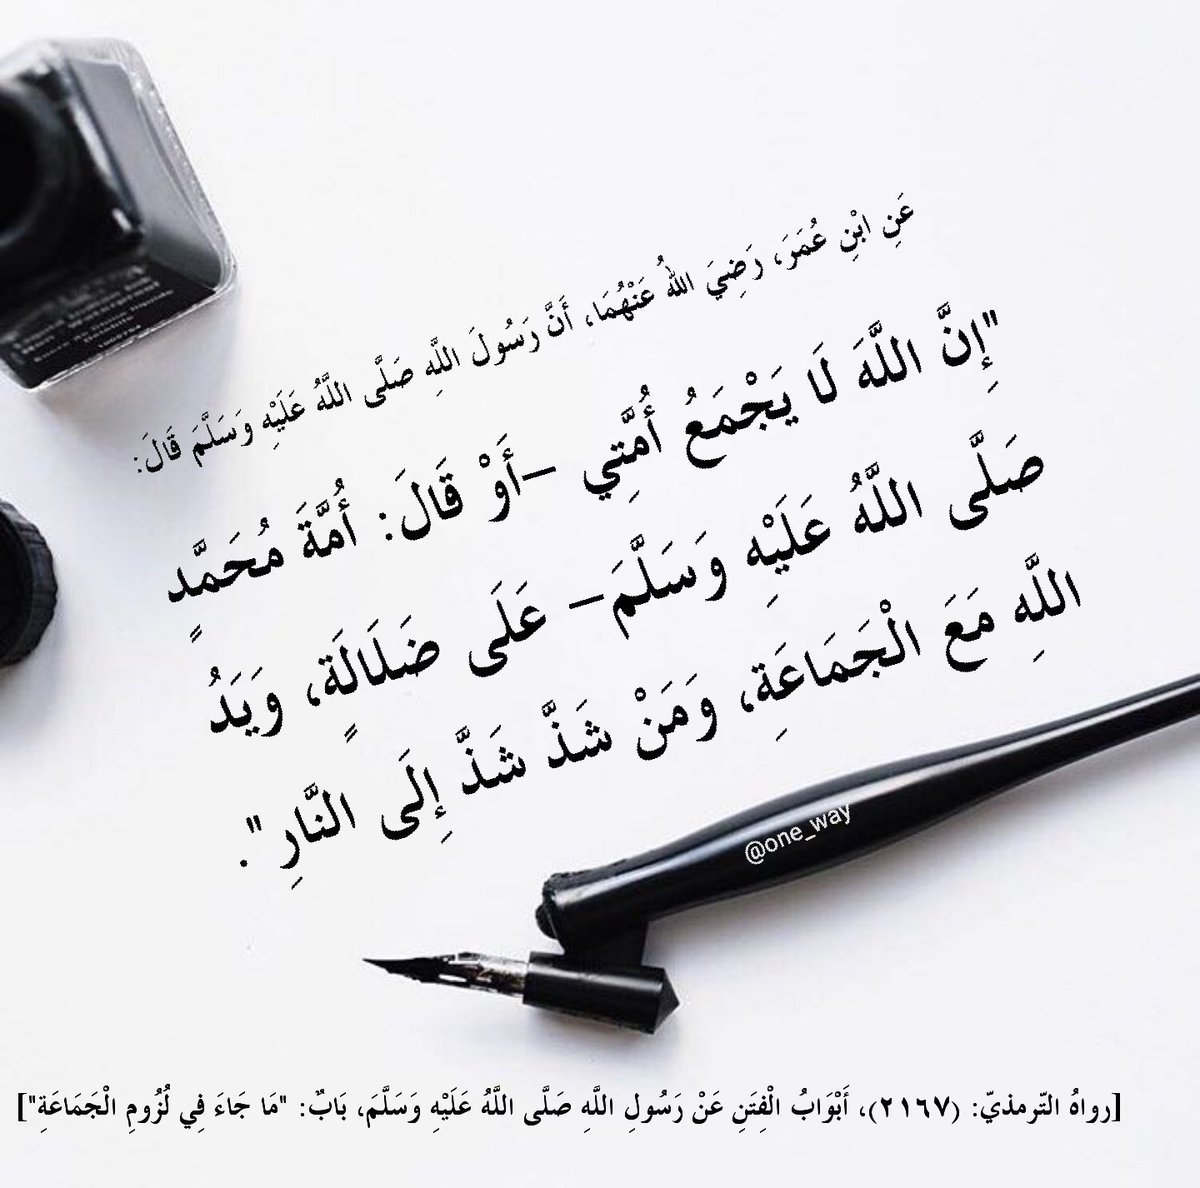 عَنِ ابْنِ عُمَرَ، رَضِيَ اللهُ عَنْهُمَا، أَنَّ رَسُولَ اللَّهِ صَلَّى اللَّهُ عَلَيْهِ وَسَلَّمَ قَالَ:
"إِنَّ اللَّهَ لَا يَجْمَعُ أُمَّتِي -أَوْ قَالَ: أُمَّةَ مُحَمَّدٍ
صَلَّى اللَّهُ عَلَيْهِ وَسَلَّمَ- عَلَى ضَلَالَةٍ، وَيَدُ
اللَّهِ مَعَ الْجَمَاعَةِ، وَمَنْ شَذَّ شَذَّ إِلَى النَّارِ".
@one_way
[رواهُ التّرمذيّ: (٢١٦٧)، أَبْوَابُ الْفِتَنِ عَنْ رَسُولِ اللَّهِ صَلَّى اللَّهُ عَلَيْهِ وَسَلَّمَ، بَابٌ: "مَا جَاءَ فِي لُزُومِ الْجَمَاعَةِ"]